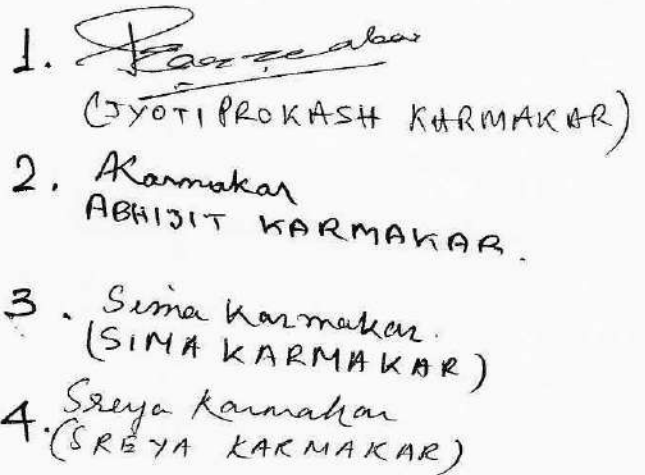 1. Karmakar
(JYOTIPROKASH KARMAKAR)
2. AKarmakar
ABHIJIT KARMAKAR.
3. Sima Karmakar.
(SIMA KARMAKAR)
4. Sreya Karmakar
(SREYA KARMAKAR)